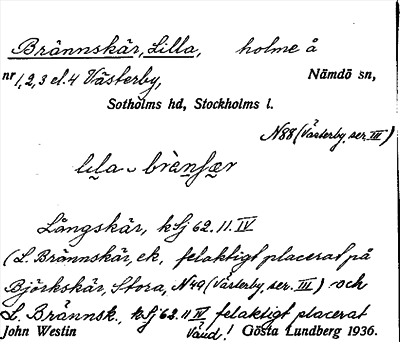 Brännskär, Lilla, holme å
nr 1, 2, 3 el. 4 Västerby, Nämdö sn,
Sotholms hd, Stockholms l.
N88 (Västerby, ser. III)
Långskär, k Sj 62. 11. IV
(L. Brännskär, ek, felaktigt placerat på
Björkskär, Stora, N49 (Västerby, ser. III) och
L. Brännsk., k Sj 62. 11 IV felaktigt placerat
John Westin Vänd! Gösta Lundberg 1936.